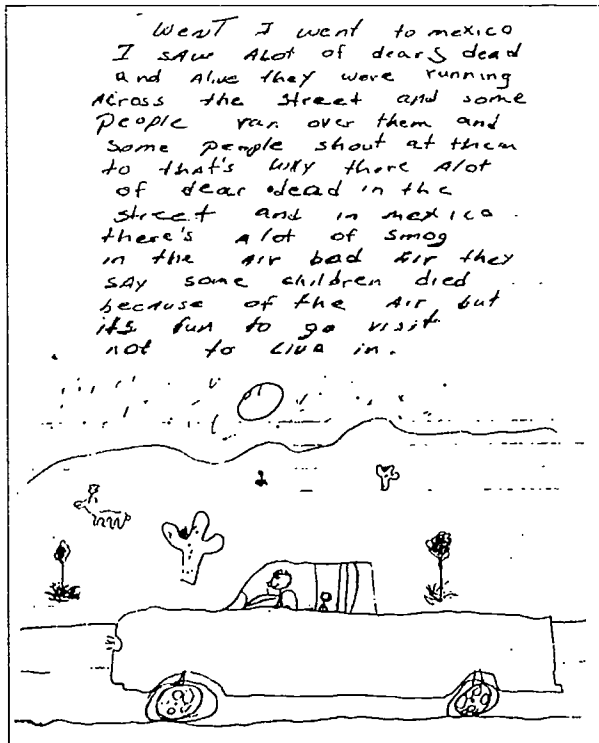 WenT I went to mexico
I SAw Alot of dears dead
and Alive they were running
Across the street and some
People ran over them and
Some people shout at them
to that's why there Alot
of dear dead in the
street and in mexico.
there's alot of smog
in the Air bad Air they
SAy some children died
because of the Air but
its fun to go visit
not to Live in.